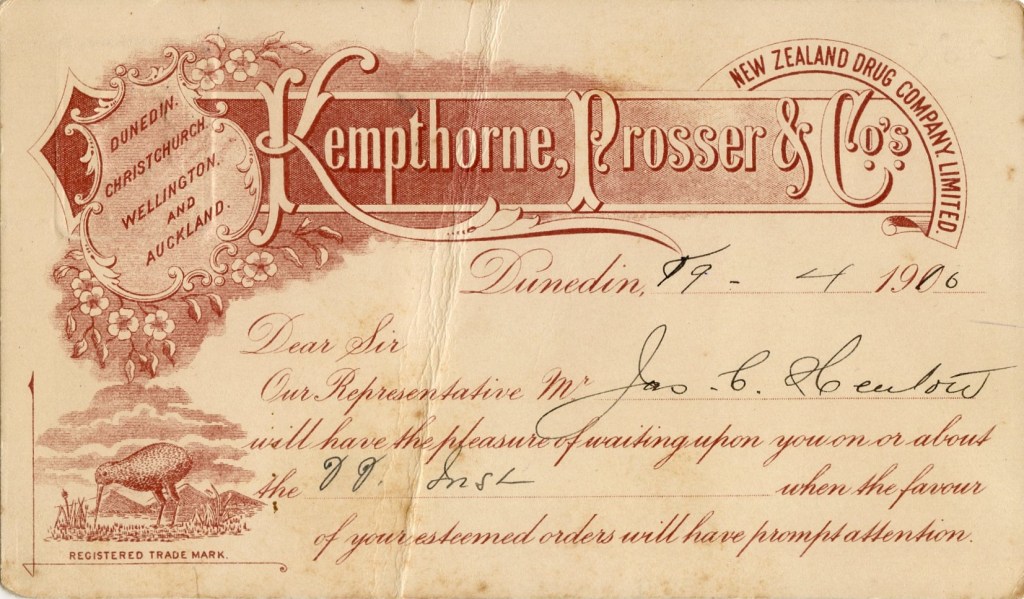 DUNEDIN.
CHRISTCHURCH.
WELLINGTON.
AND
AUCKLAND.
Kempthorne, Prosser & Co's.
NEW ZEALAND DRUG COMPANY, LIMITED
Dunedin, 19 - 4 1906
Dear Sir
Our Representative Mr Jas. C.
will have the pleasure of waiting upon you on or about
the Inst when the favour
of your esteemed orders will have prompt attention.
REGISTERED TRADE MARK.